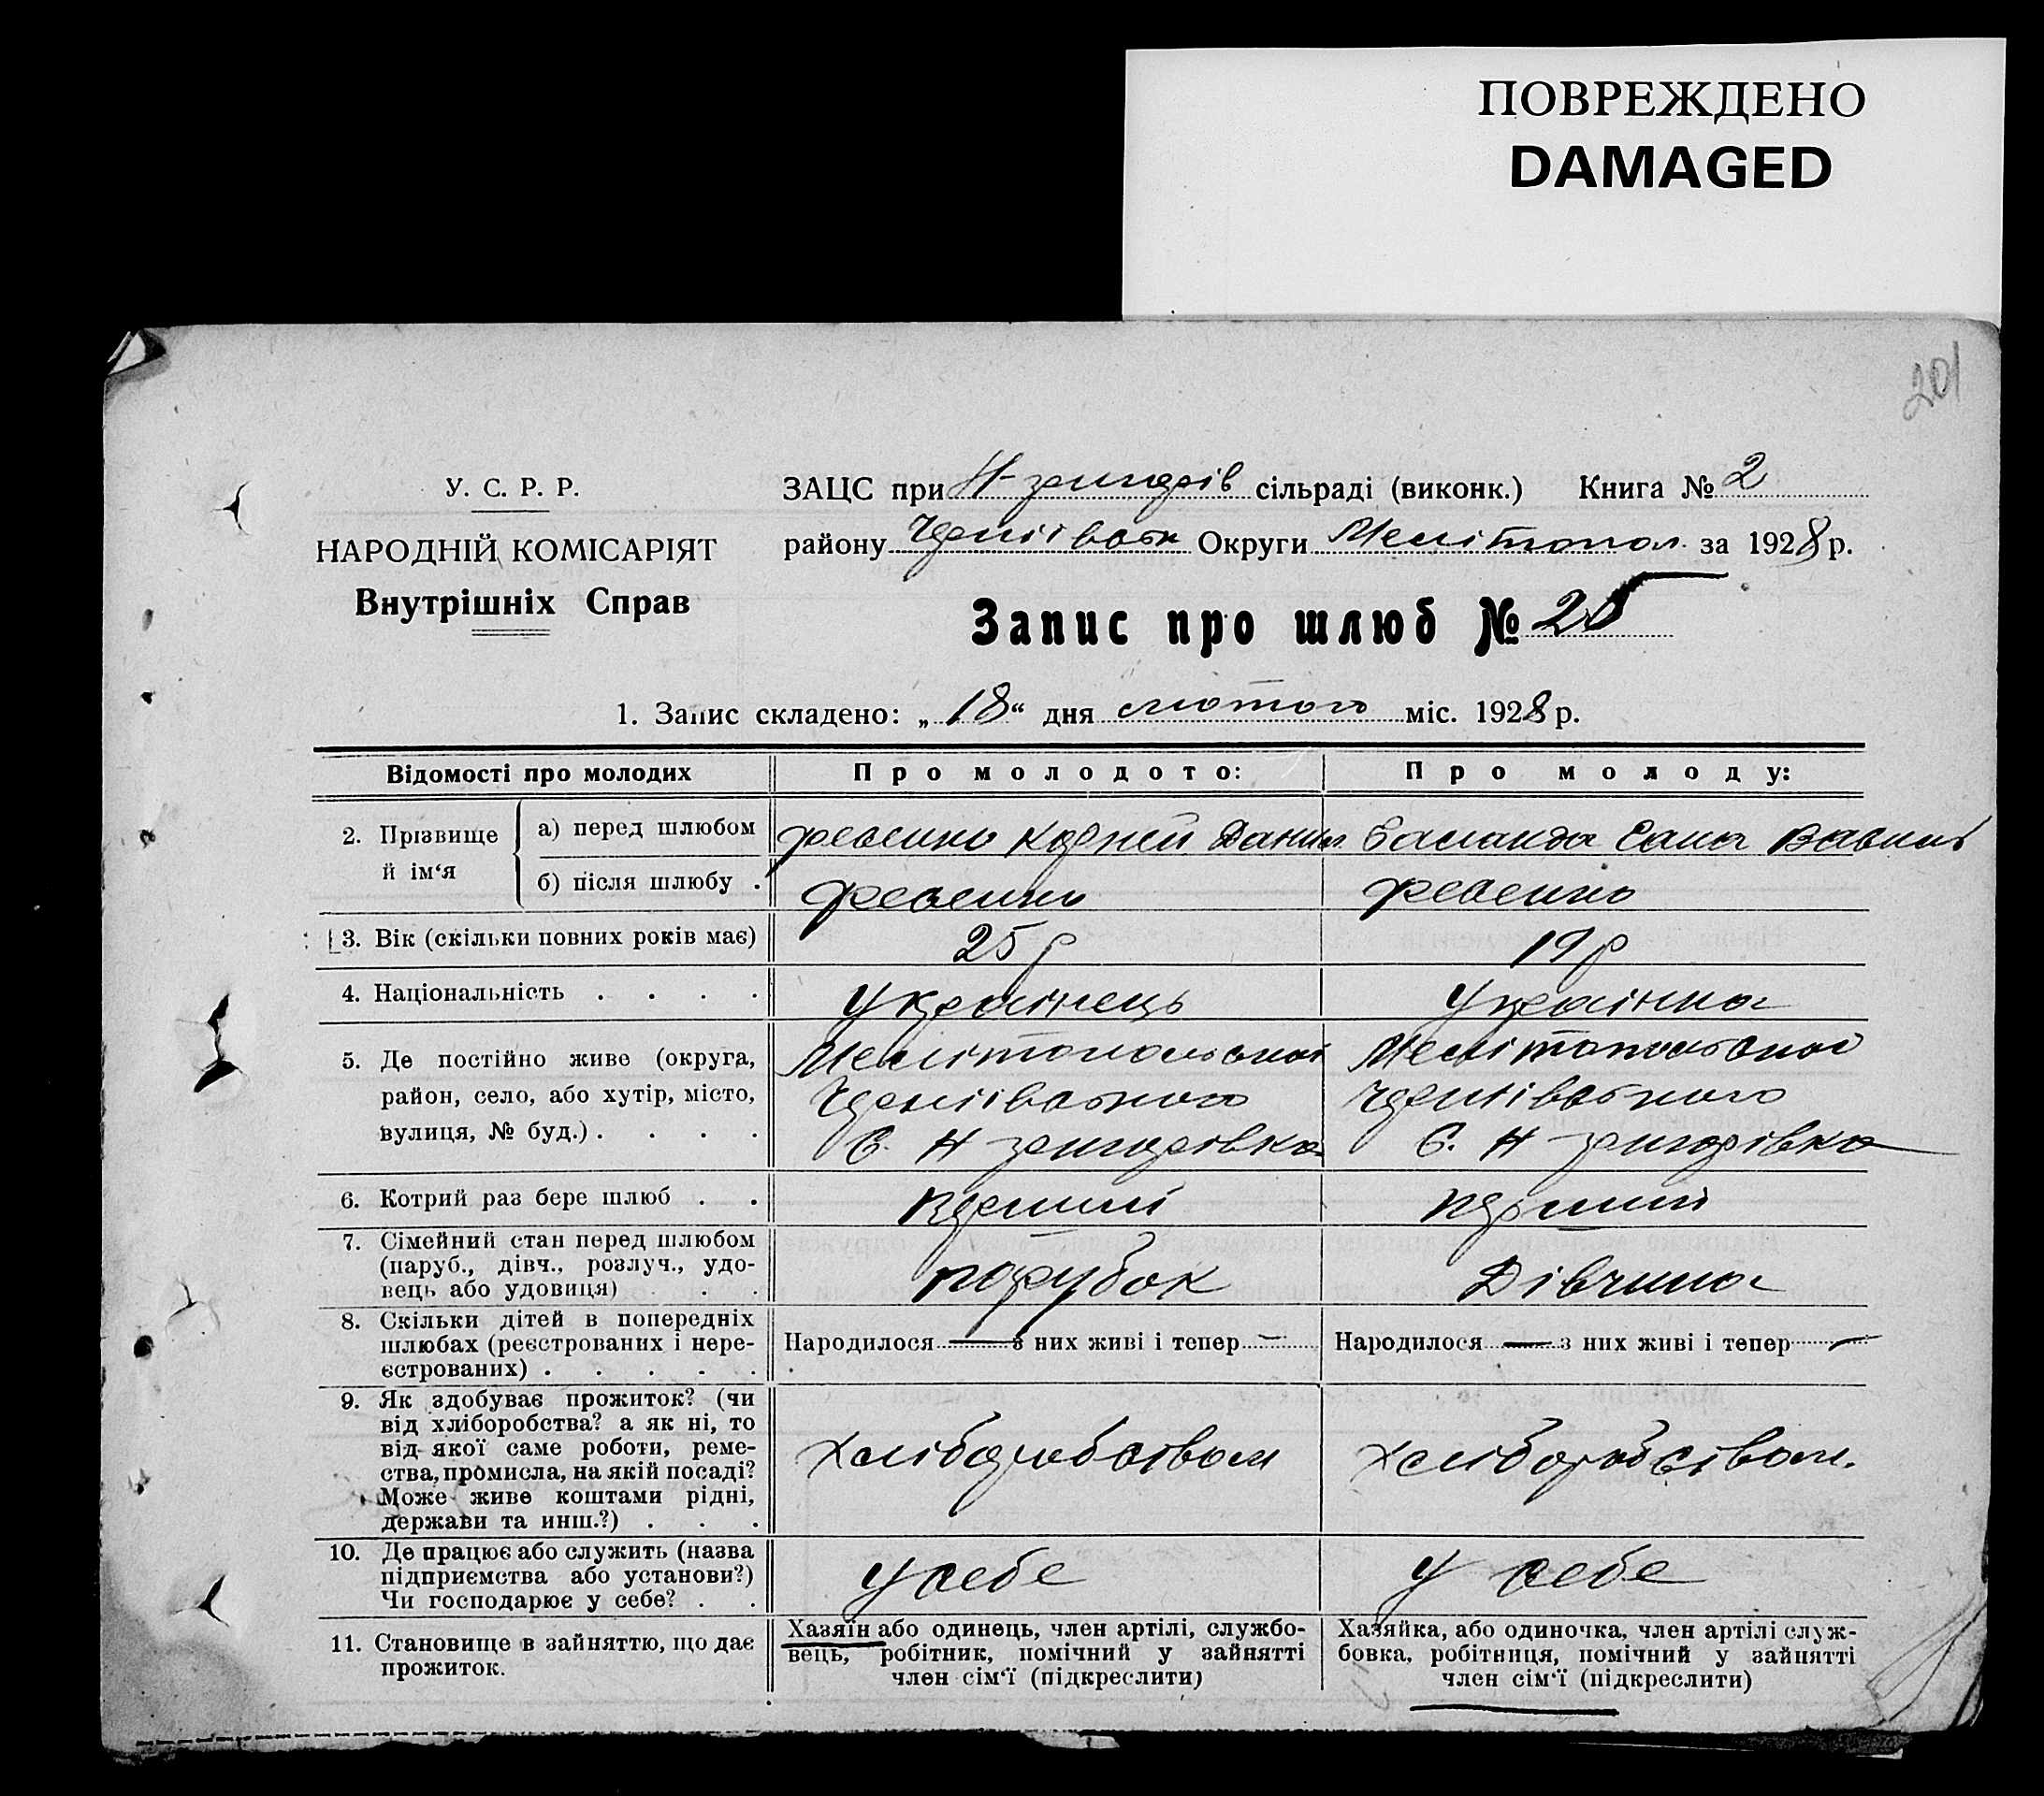 ПОВРЕЖДЕНО
DAMAGED
201
У. С. Р. Р.
НАРОДНІЙ КОМІСАРІЯТ
Внутрішніх Справ
ЗАЦС при сільраді (виконк.) Книга № 2
району Округи Мелітопол. за 1928 р.
Запис про шлюб № 25
1. Запис складено: „18“ дня лютого міс. 1928 р.
Відомості про молодих
Про молодого:
Про молоду:
2. Прізвище й ім‘я
а) перед шлюбом
Корней Данил.
б) після шлюбу .
3. Вік (скільки повних років має)
25 р
19 р
4. Національність . . . .
Українець
Українка
5. Де постійно живе (округа, район, село, або хутір, місто, вулиця, № буд.) . . . .
Мелітопольської
С. Н григорівка
Мелітопольської
С. Н григорівка
6. Котрий раз бере шлюб . .
перший
перший
7. Сімейний стан перед шлюбом (паруб., дівч., розлуч., удовець або удовиця) . .
парубок
Дівчина
8. Скільки дітей в попередніх шлюбах (реєстрованих і нереєстрованих) . . . . .
Народилося — з них живі і тепер —
Народилося — з них живі і тепер —
9. Як здобуває прожиток? (чи від хліборобства? а як ні, то від якої саме роботи, ремества, промисла, на якій посаді? Може живе коштами рідні, держави та инш.?) . . .
хліборобством
хліборобством.
10. Де працює або служить (назва підприємства або установи?) Чи господарює у себе? . .
у себе
у себе
11. Становище в зайняттю, що дає прожиток.
Хазяїн або одинець, член артілі, службовець, робітник, помічний у зайнятті член сім‘ї (підкреслити)
Хазяйка, або одиночка, член артілі службовка, робітниця, помічний у зайнятті член сім‘ї (підкреслити)